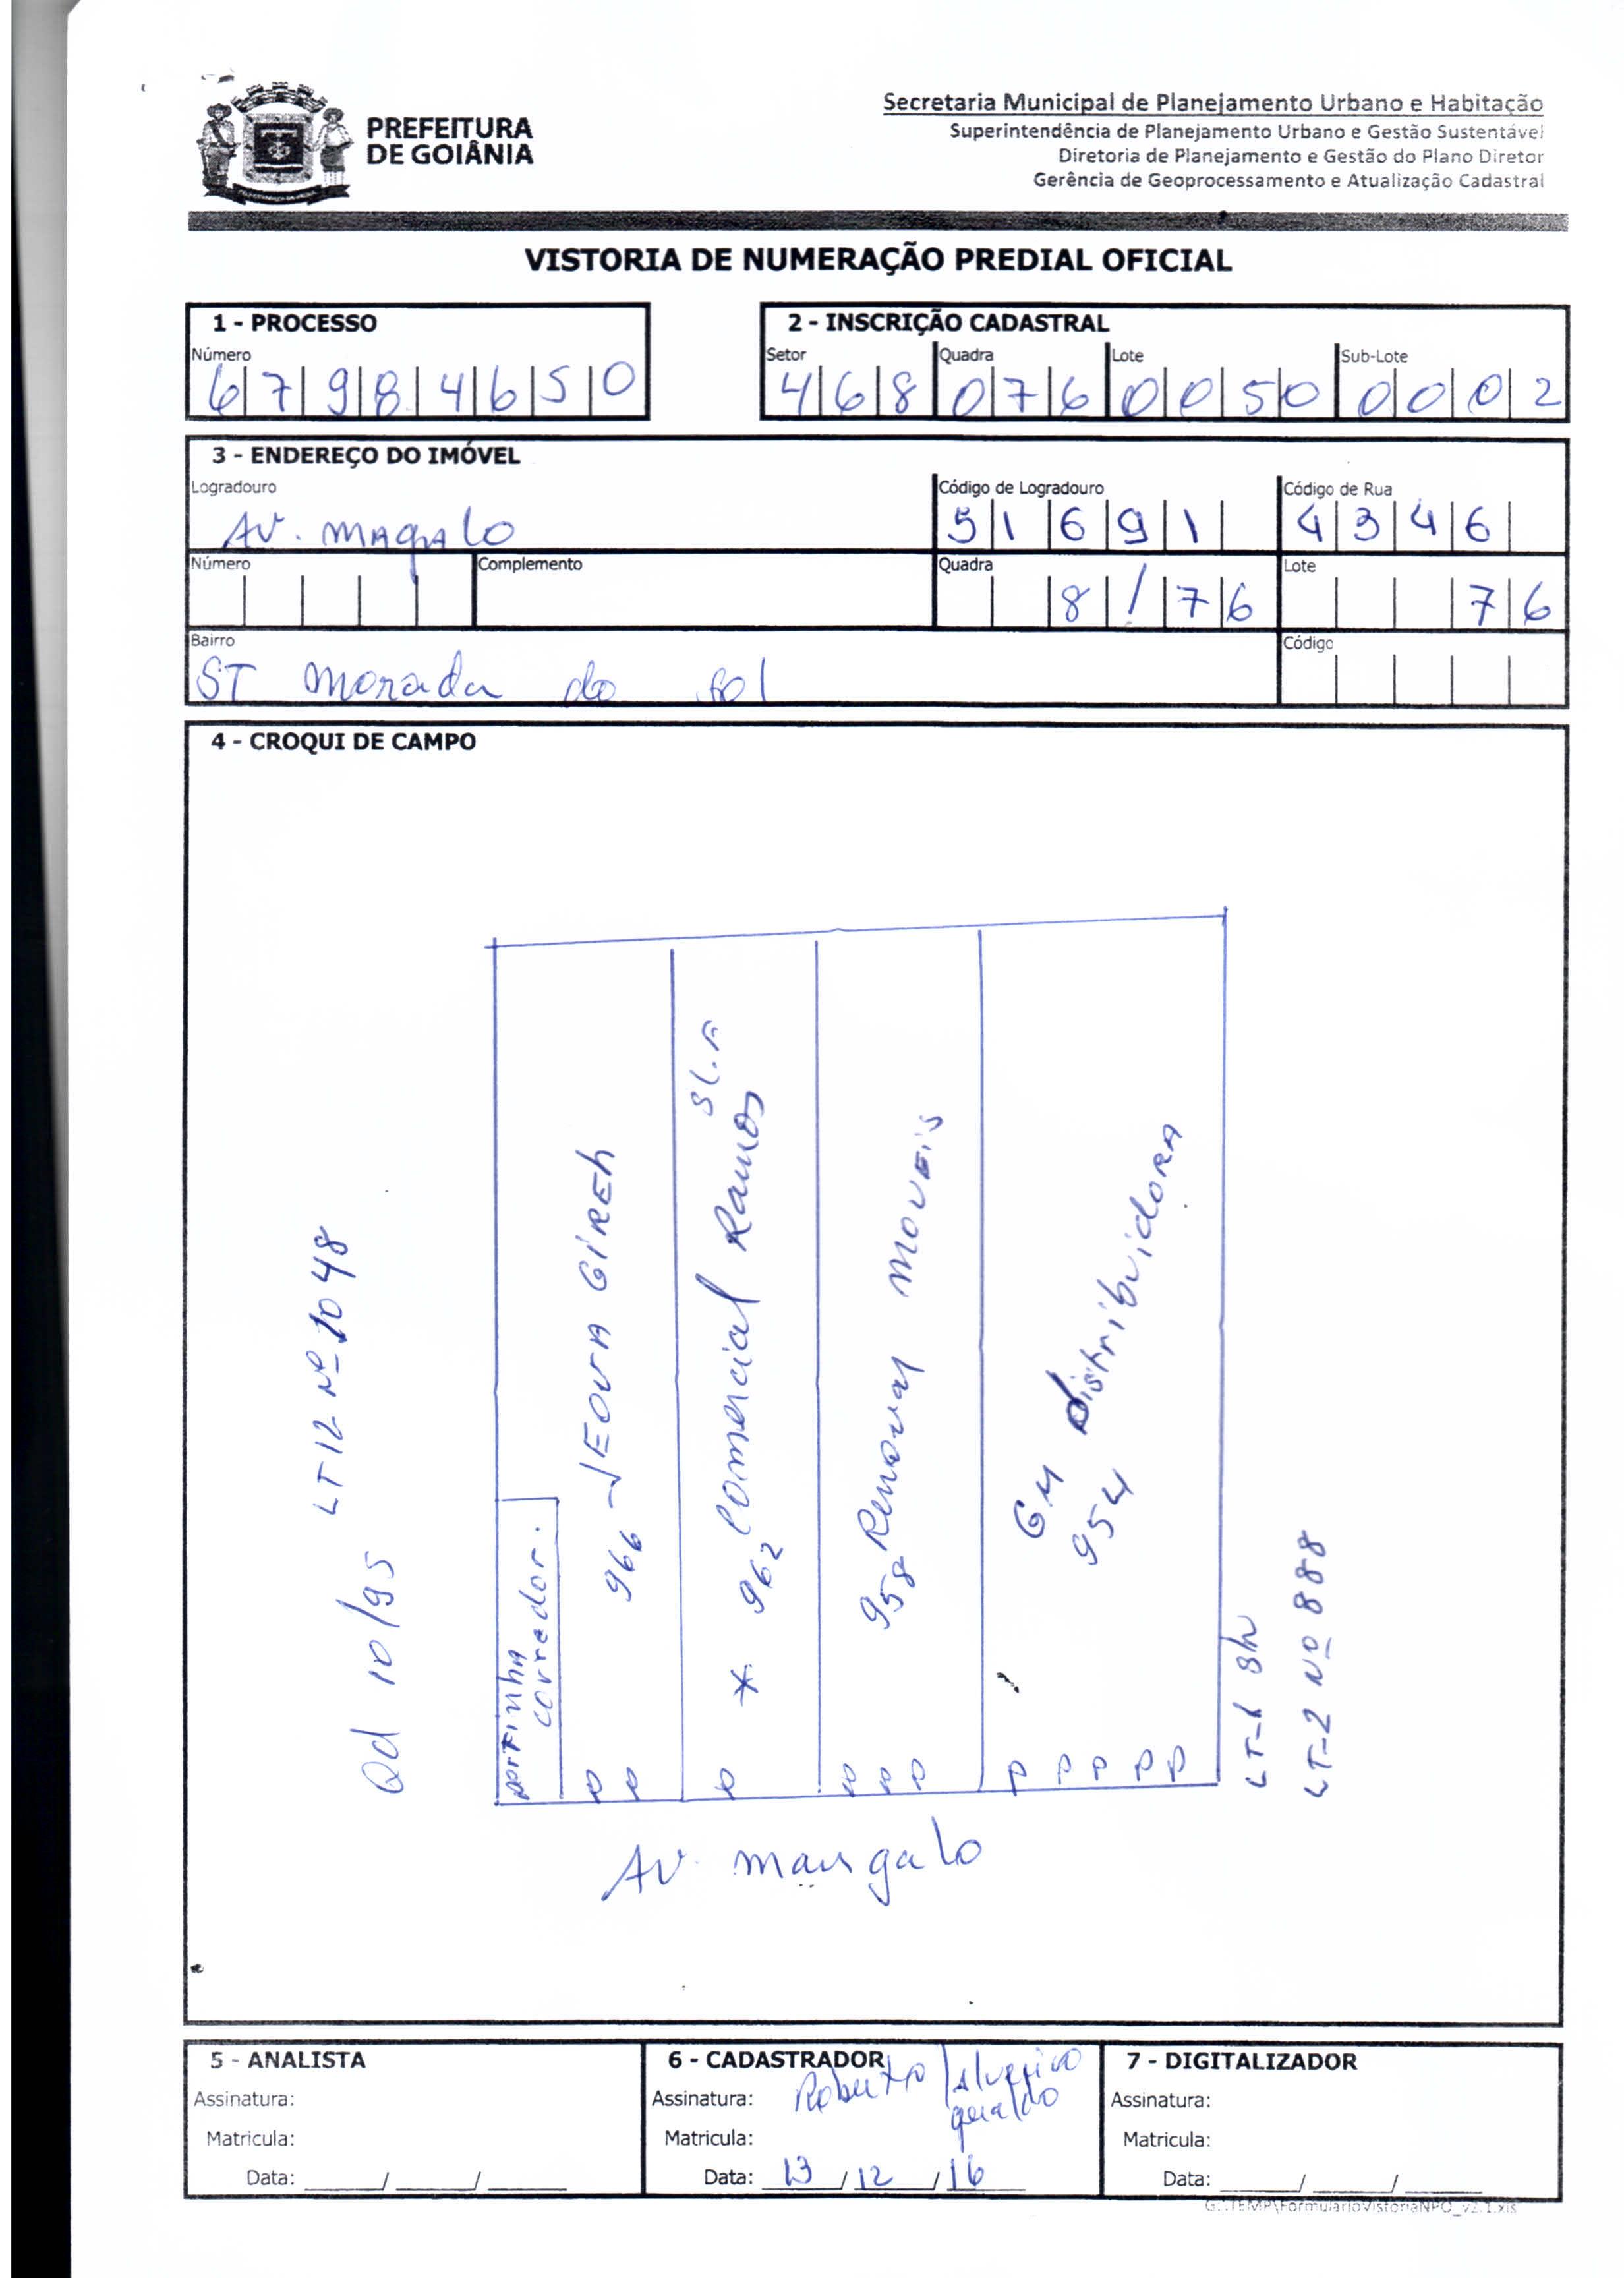 PREFEITURA
DE GOIÂNIA
Secretaria Municipal de Planejamento Urbano e Habitação
Superintendência de Planejamento Urbano e Gestão Sustentável
Diretoria de Planejamento e Gestão do Plano Diretor
Gerência de Geoprocessamento e Atualização Cadastral
VISTORIA DE NUMERAÇÃO PREDIAL OFICIAL
1 - PROCESSO
Número
6 7 9 8 4 6 5 0
2 - INSCRIÇÃO CADASTRAL
Setor Quadra Lote Sub-Lote
4 6 8 0 7 6 0 0 5 0 0 0 0 2
3 - ENDEREÇO DO IMÓVEL
Logradouro Código de Logradouro Código de Rua
AV. MAGALO 5 1 6 9 1 4 3 4 6
Número Complemento Quadra Lote
8 / 7 6 7 6
Bairro Código
ST Morada do sol
4 - CROQUI DE CAMPO
Qd 10/95
LT 12 Nº 1048
portinha
corredor.
966 - JEOVA GIREH
* 962 Comercial Ramos
SL.A
958 Renovar MOVEIS
GM Distribuidora
954
LT-1 8h
LT-2 Nº 888
AV. mangalo
5 - ANALISTA
Assinatura:
Matricula:
Data: ____/____/____
6 - CADASTRADOR
Assinatura: Roberto / Alverino
geraldo
Matricula:
Data: 13 / 12 / 16
7 - DIGITALIZADOR
Assinatura:
Matricula:
Data: ____/____/____
G:\TEMP\FormularioVistoriaNPO_v2.1.xls